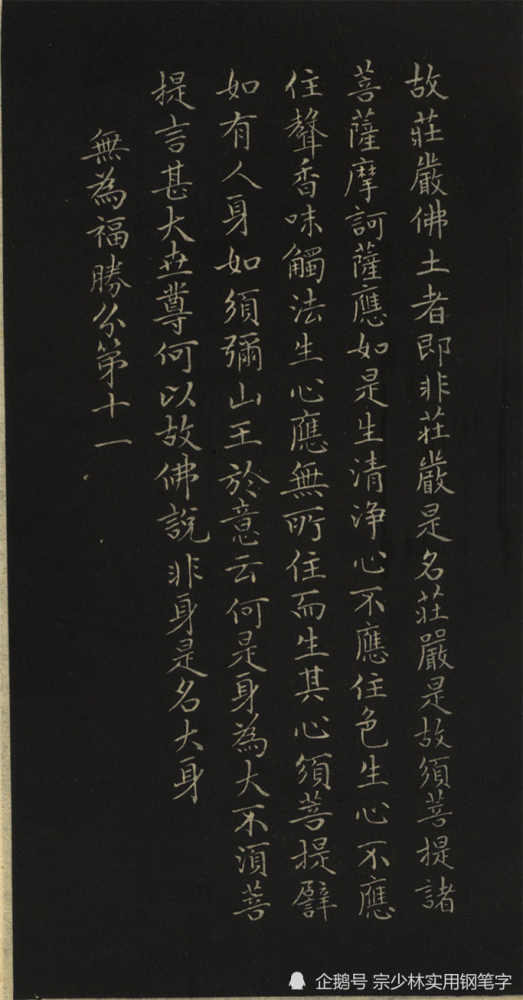 故莊嚴佛土者即非莊嚴是名莊嚴是故須菩提諸
菩薩摩訶薩應如是生清淨心不應住色生心不應
住聲香味觸法生心應無所住而生其心須菩提譬
如有人身如須彌山王於意云何是身為大不須菩
提言甚大世尊何以故佛說非身是名大身
無為福勝分第十一
企鹅号 宗少林实用钢笔字